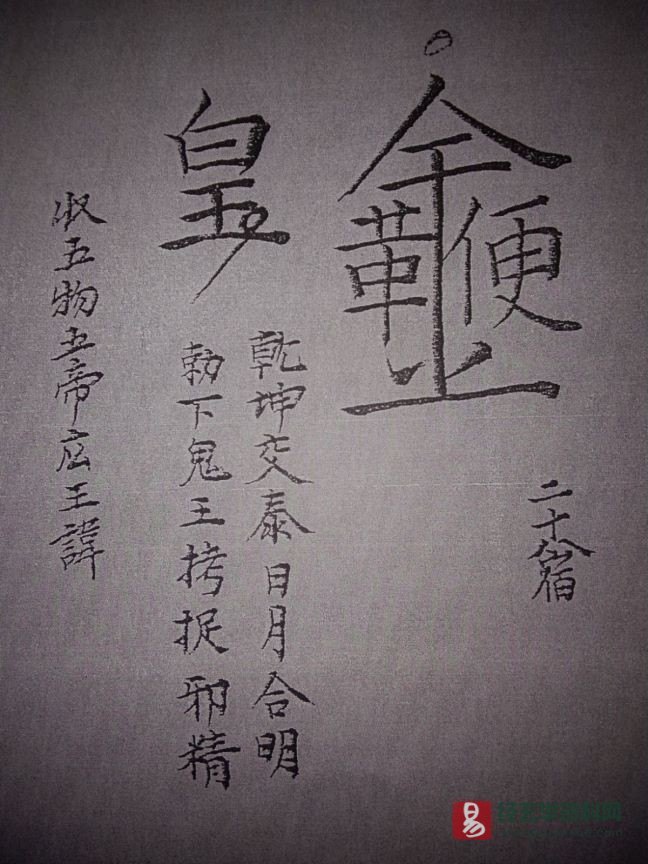 金鞭
二十八宿
皇
乾坤交泰日月合明
勅下鬼王拷捉邪精
五物五帝王諱
易